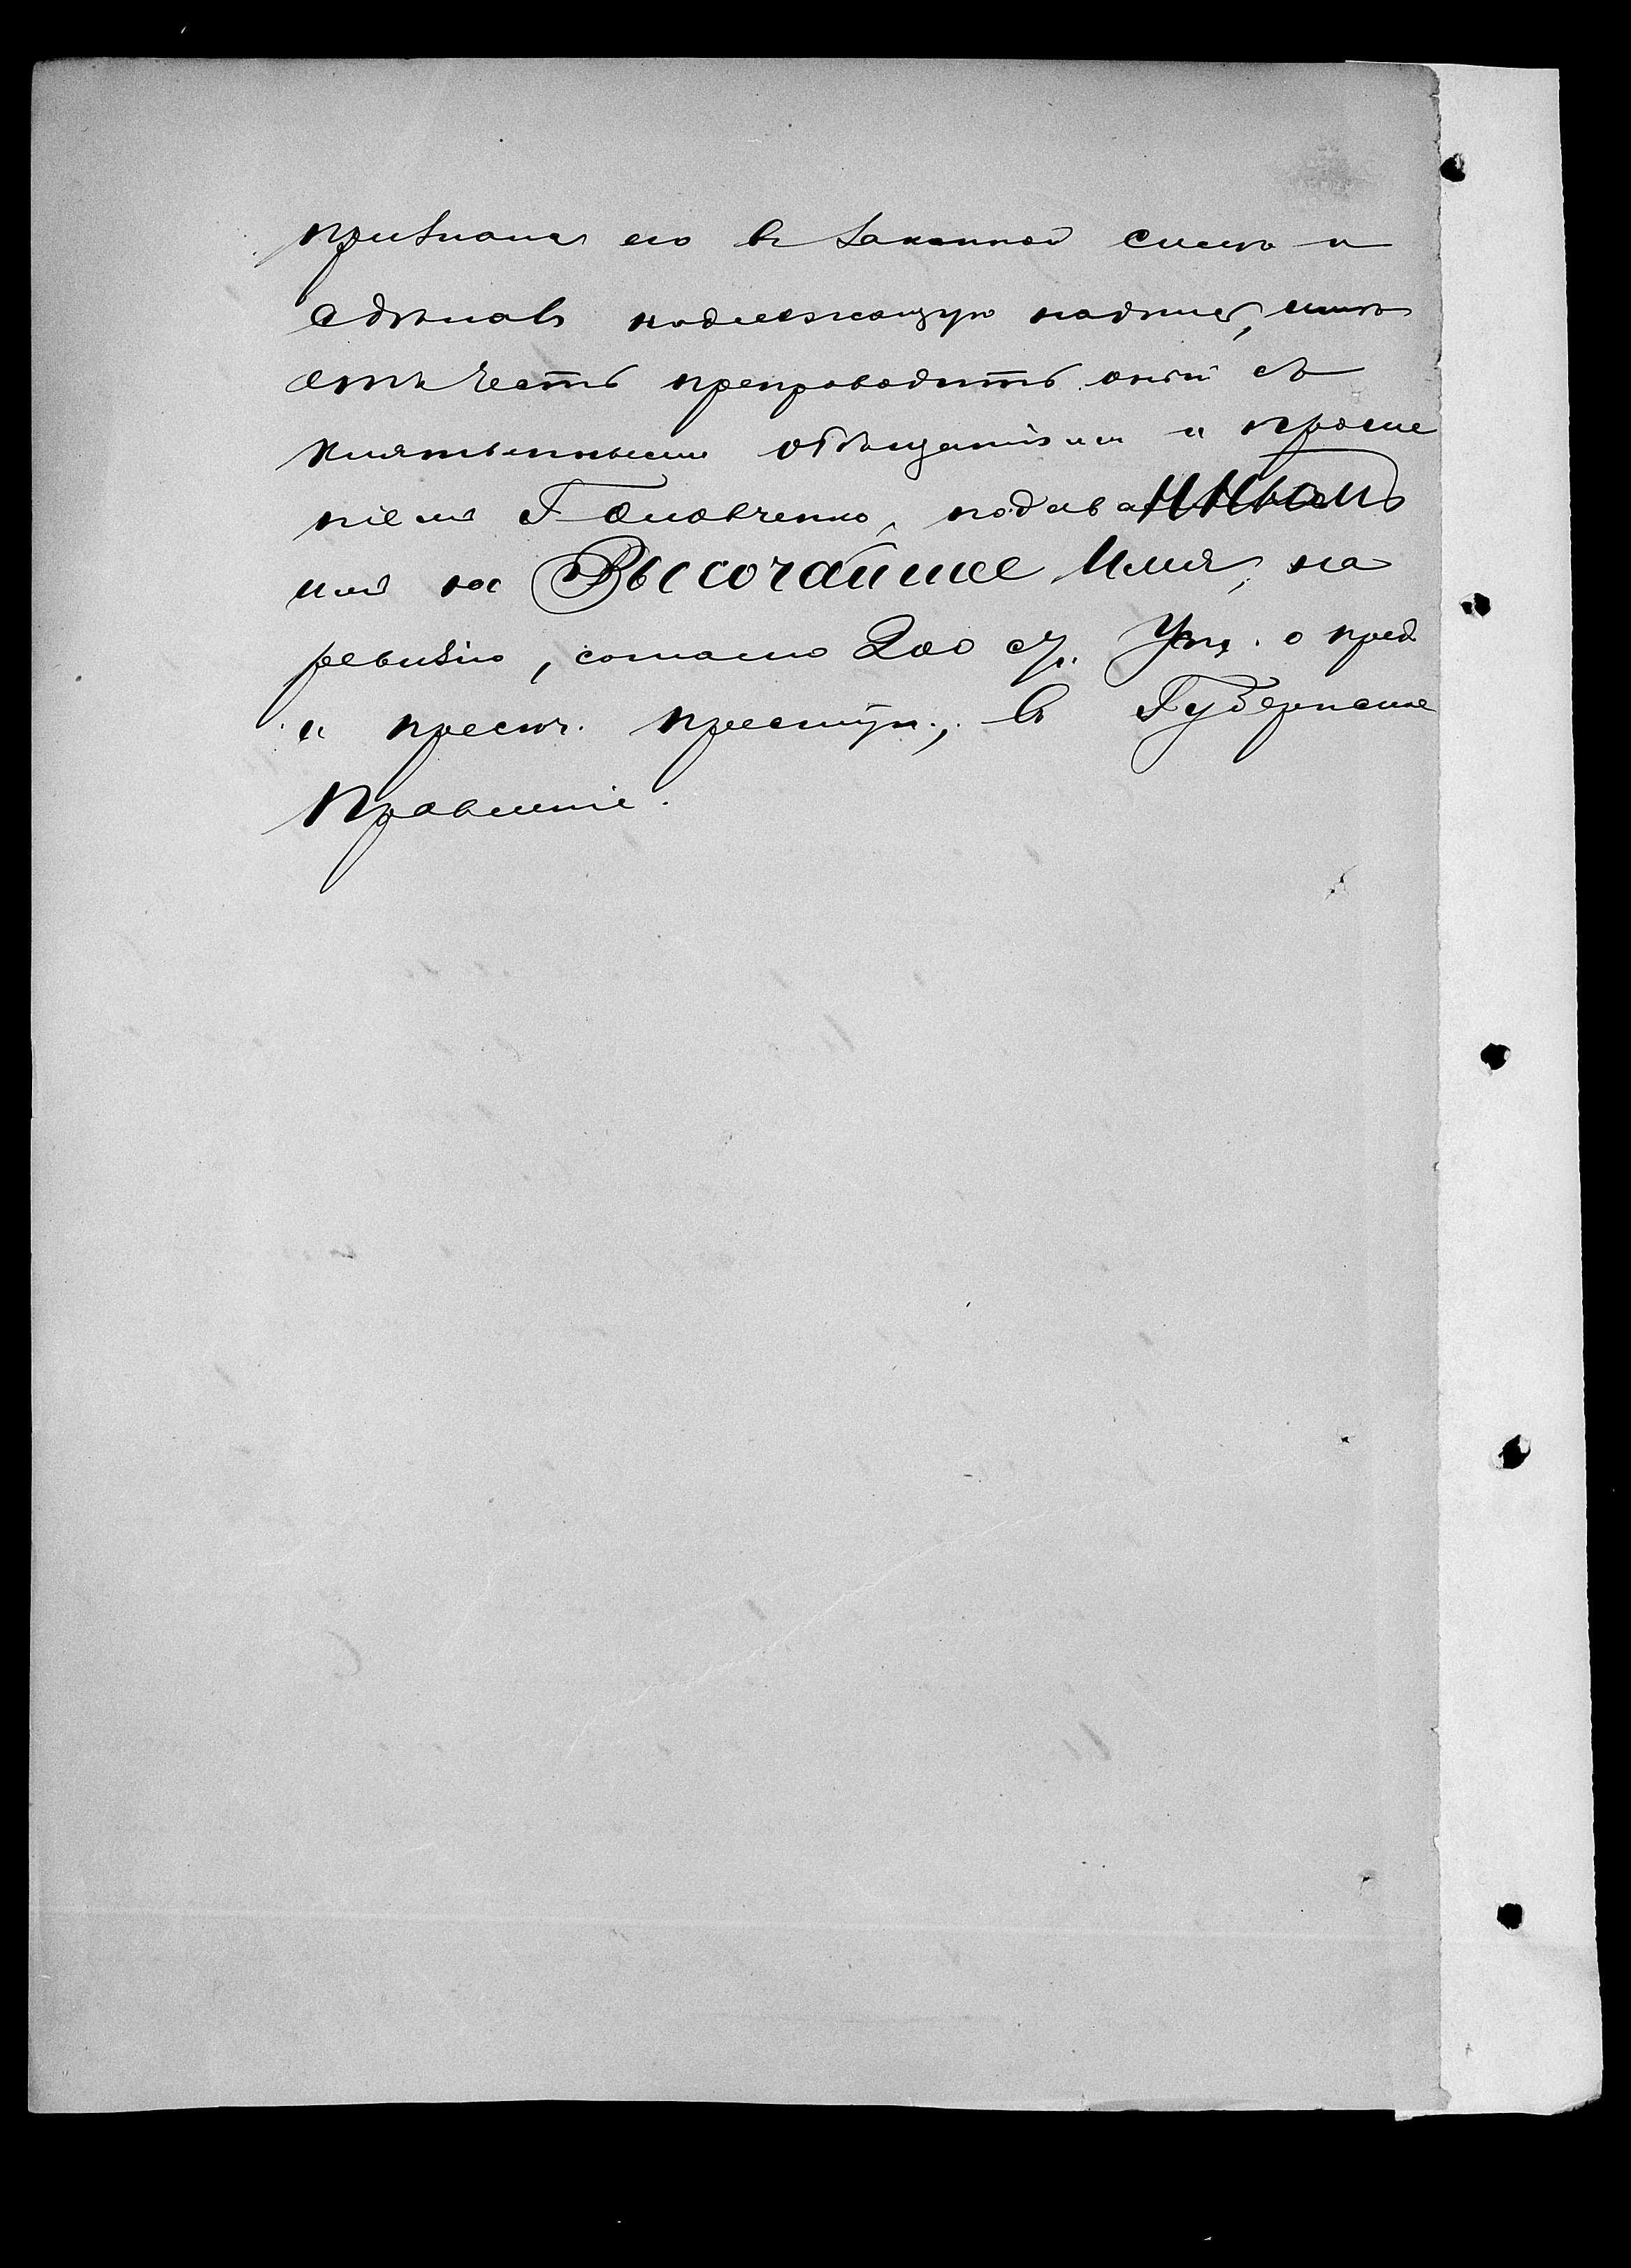 признала его в законной силѣ и
сдѣлавъ надлежащую надпись, имѣ
етъ честь препроводить оный съ
клятвеннымъ обѣщаніемъ и проше
ніемъ Головченко, подаваннымъ
имъ на Высочайшее Имя, на
ревизію, согласно 200 ст. Уст. о пред.
и пресѣч. преступ., въ Губернское
Правленіе.